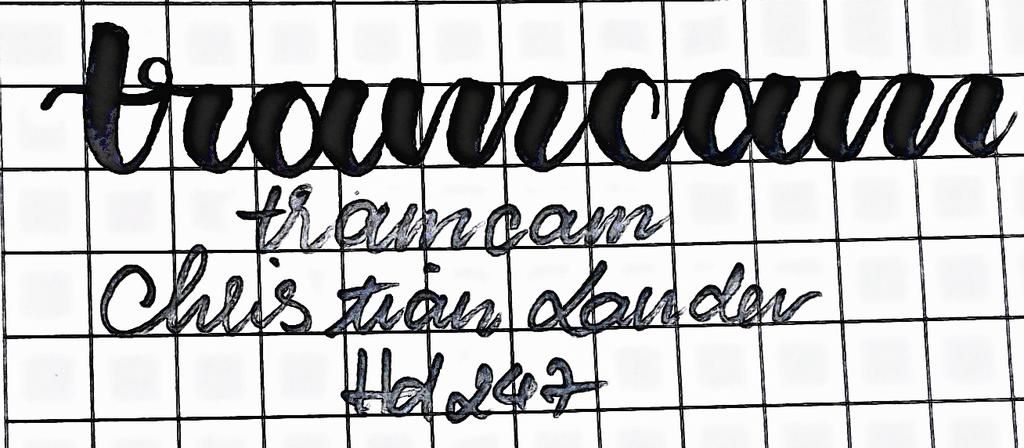 tramcam
tramcam
Christian Lander
Hd247